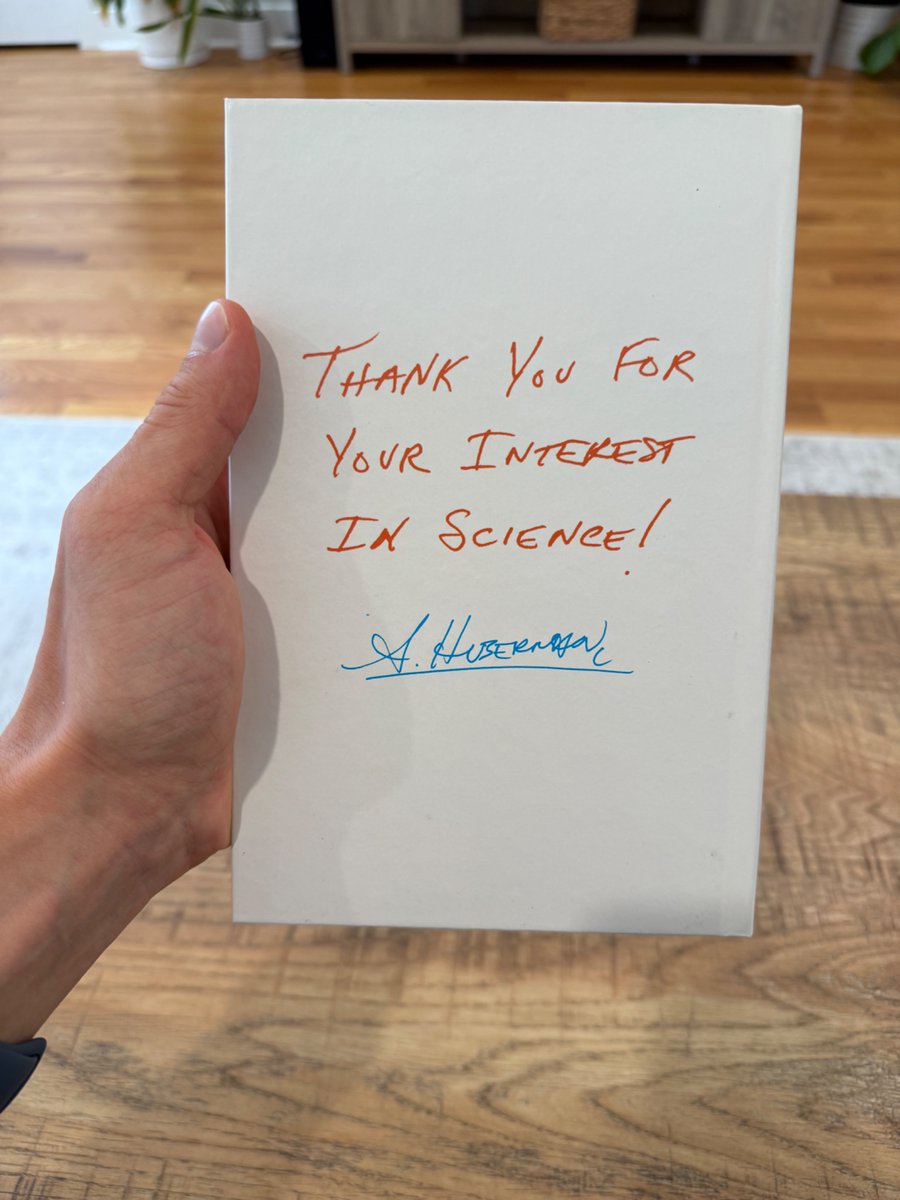 THANK YOU FOR
YOUR INTEREST
IN SCIENCE!
A. HUBERMAN